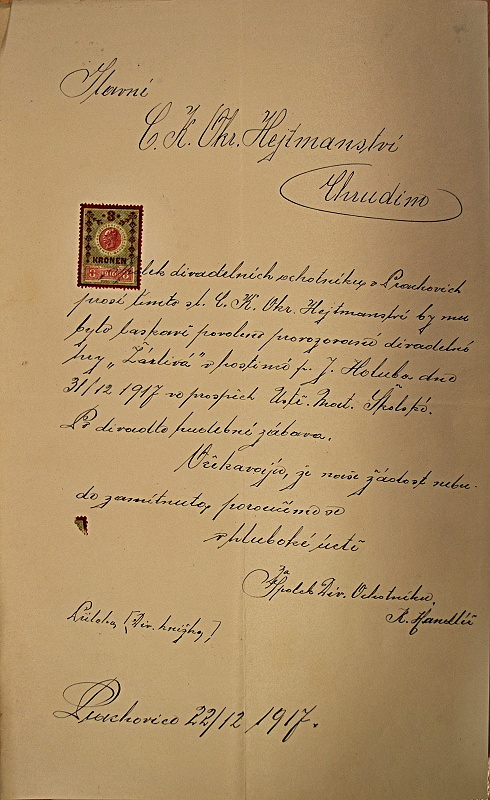 Slavné
C. K. Okr. Hejtmanství
Chrudim
3
KRONEN
3 1910 3
Spolek divadelních ochotníků v Prachovicích
prosí tímto sl. C. K. Okr. Hejtmanství by mu
bylo laskavě povoleno provozování divadelní
hry „Žárlivá" v hostinci p. J. Holuba dne
31/12 1917 ve prospěch Ústř. Mat. Školské.
Po divadle hudební zábava.
Očekávajíc, že naše žádost nebu-
de zamítnuta, poroučíme se
v hluboké úctě
Za
Spolek Div. Ochotníků
R.
Příloha [Div. knížka]
Prachovice 22/12 1917.